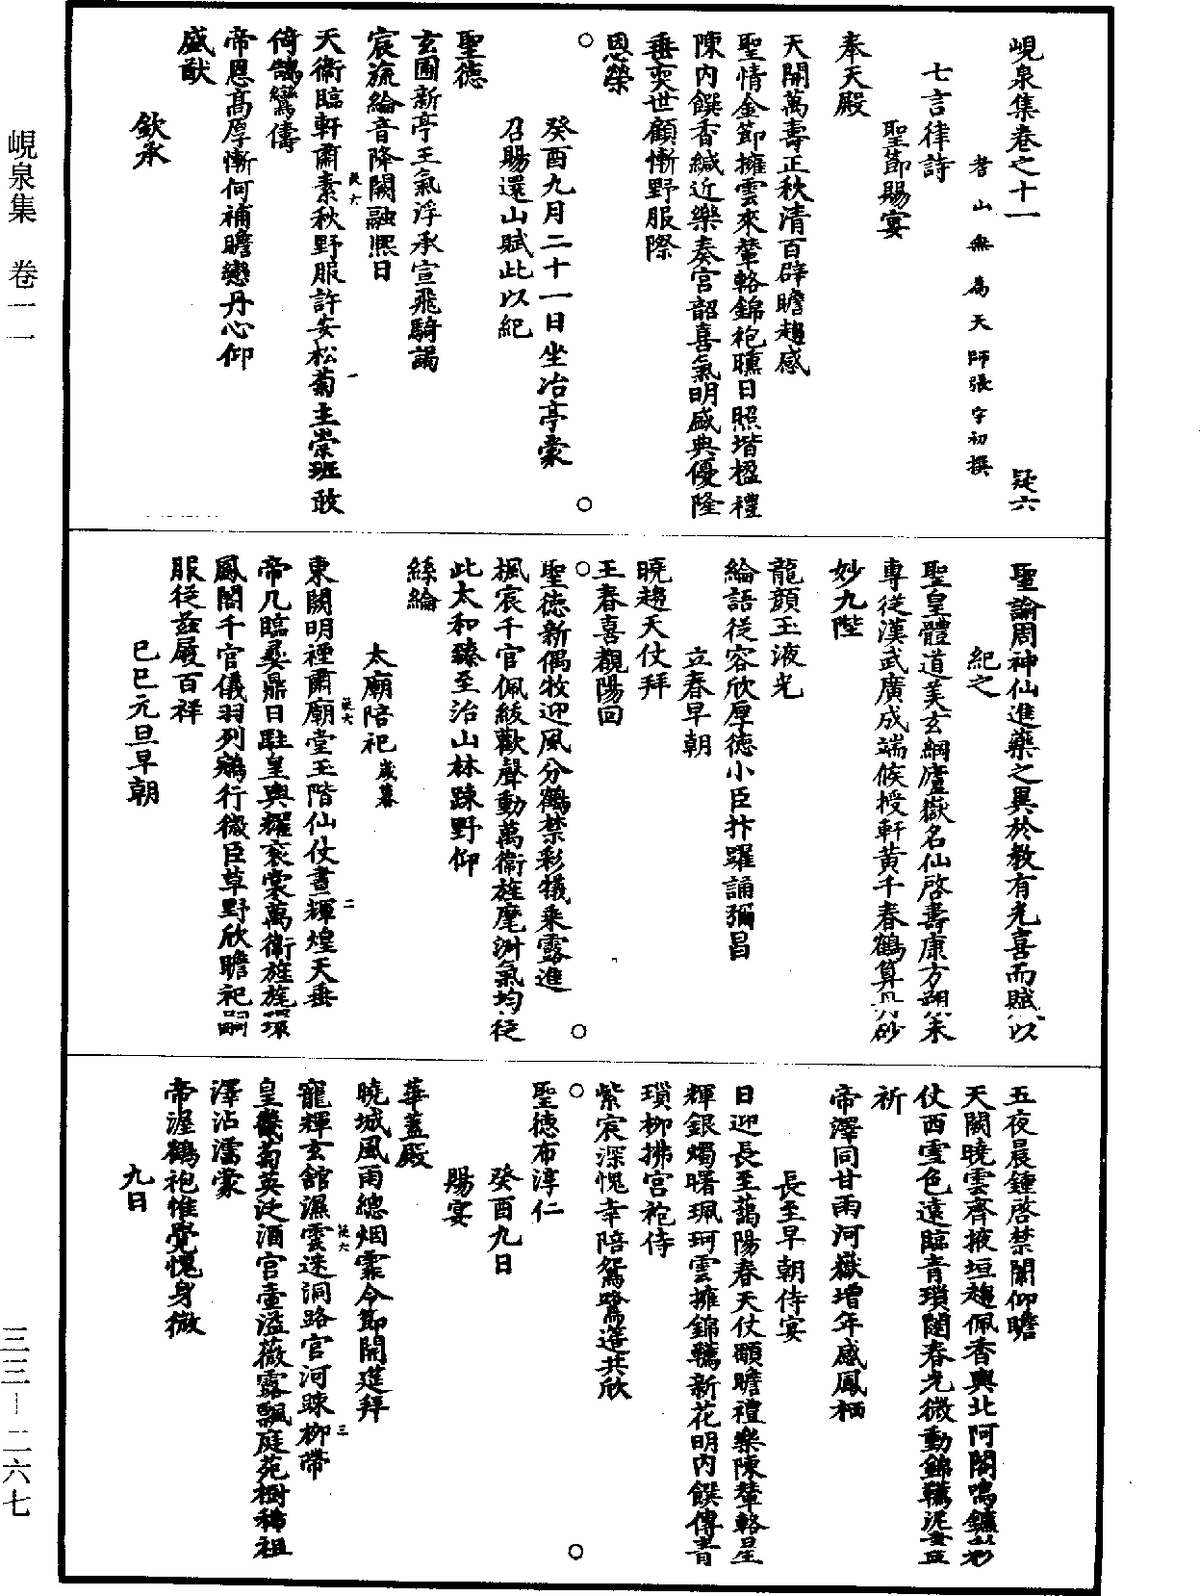 峴泉集卷之十一 疑六
耆山無為天師張宇初撰
七言律詩
聖節賜宴
奉天殿
天開萬壽正秋清百辟瞻趨感
聖情金節擁雲來輦輅錦袍曛日照堦楹禮
陳內饌香緘近樂奏宮韶喜氣明盛典優隆
垂奕世顧慚野服際
恩榮
癸酉九月二十一日坐冶亭蒙
召賜還山賦此以紀
聖德
玄圃新亭王氣浮承宣飛騎謁
宸旒綸音降闕融熈日
天衛臨軒肅素秋野服許安松菊主崇班敢
倚鵷鸞儔
帝恩高厚慚何補瞻戀丹心仰
盛猷
欽承
聖諭周神仙進藥之異於教有光喜而賦以
紀之
聖皇體道美玄綱廬嶽名仙啓壽康方朔米
專從漢武廣成端候授軒黃千春鶴算丹砂
妙九陛
龍顔玉液光
綸語從容欣厚德小臣抃躍誦彌昌
立春早朝
曉趨天仗拜
王春喜觀陽回
聖德新偶牧迎風分鶴禁彩犧乘露進
楓宸千官佩綬歡聲動萬衛旌麾淑氣均從
此太和臻至治山林踈野仰
絲綸
太廟陪祀歲暮
東闕明禋肅廟堂玉階仙仗晝輝煌天垂
帝几臨彝鼎日駐皇輿耀袞裳萬衛旌旄環
鳳閣千官儀羽列鵷行微臣草野欣瞻祀嗣
服從兹屐百祥
己巳元旦早朝
五夜晨鍾啓禁闈仰瞻
天闕曉雲齊掖垣趨佩香輿北阿閣鳴鑣彩
仗西雪色遠臨青瑣闥春光微動錦韉泥
祈
帝澤同甘雨河嶽增年感鳳栖
長至早朝侍宴
日迎長至藹陽春天仗頤瞻禮樂陳輦輅星
輝銀燭曙珮珂雲擁錦韉新花明內饌傳青
瑣柳拂宮袍侍
紫宸深愧幸陪鴛鷺筵共欣
聖德布淳仁
癸酉九日
賜宴
華蓋殿
曉城風雨總烟霏令節開筵拜
寵輝玄舘濕雲迷洞路官河踈柳帶
皇畿菊英泛酒宮壺溢薇露飄庭苑樹稀祖
澤沾濡蒙
帝渥鶴袍惟覺愧身微
九日
峴泉集 卷一一
三三—二六七
疑六 一
疑六 二
疑六 三